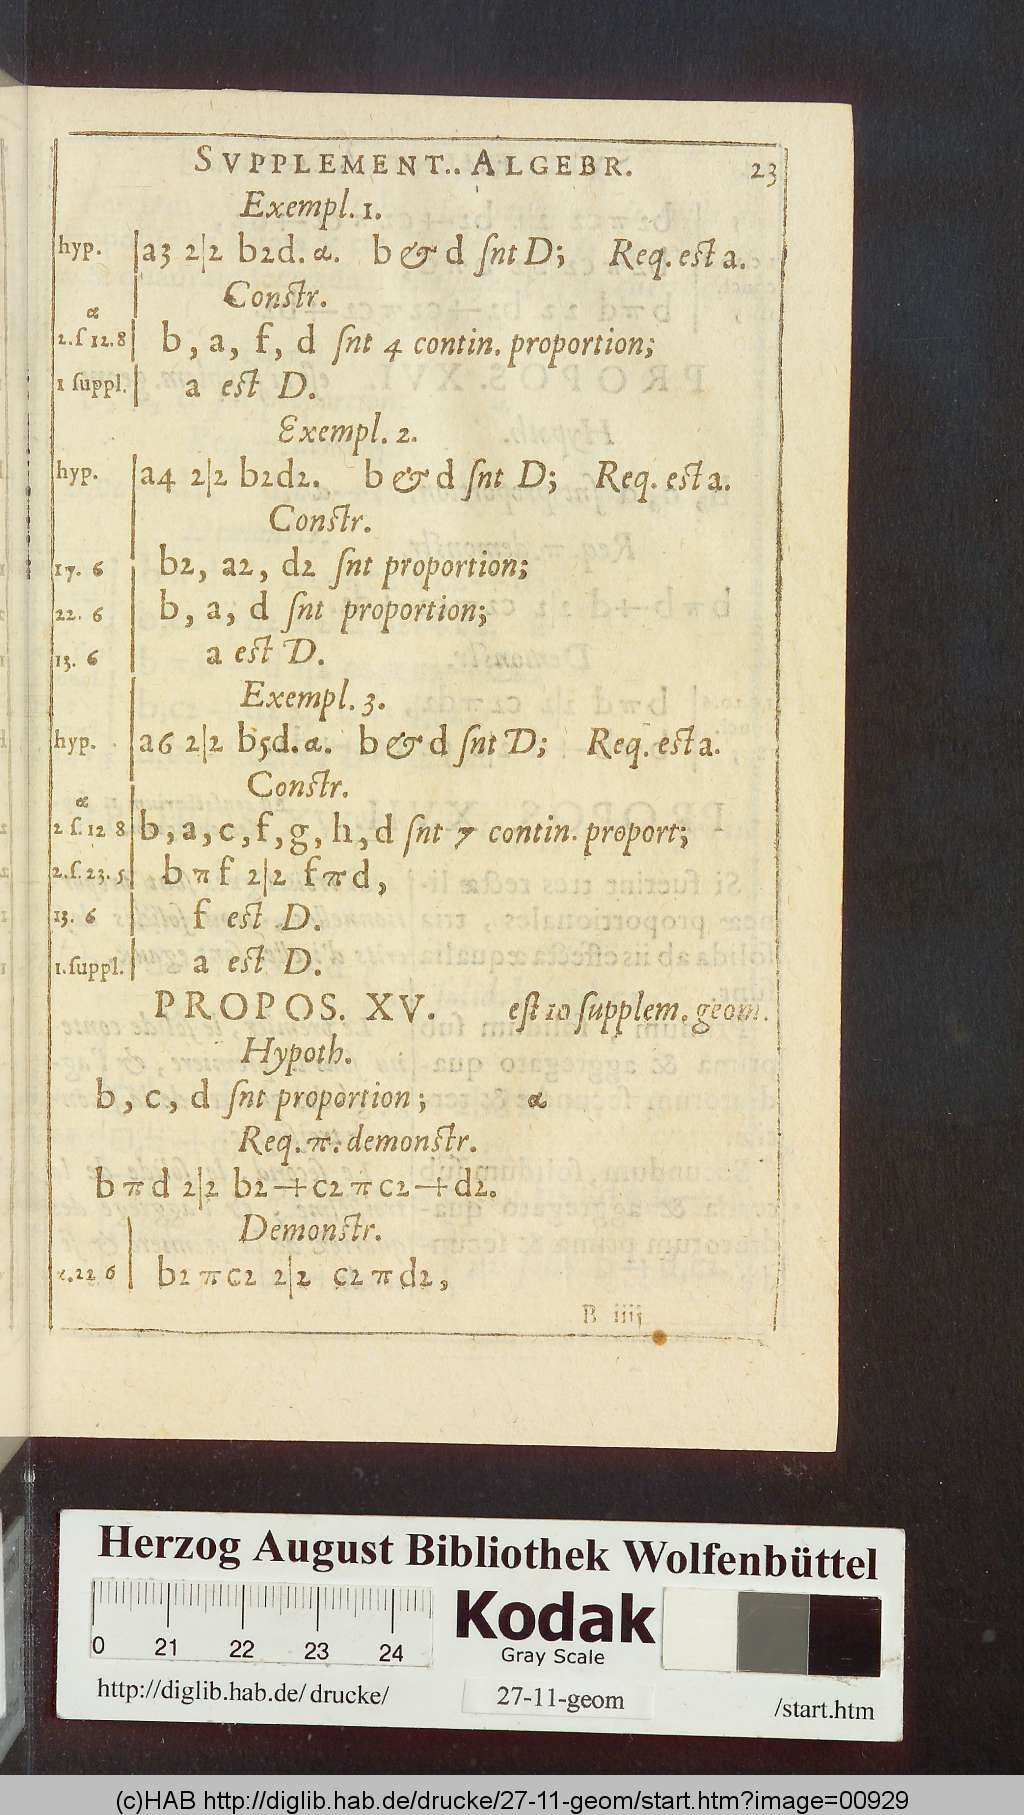 SVPPLEMENT.. ALGEBR. 23
Exempl. 1.
hyp. |a3 2|2 b2d. α. b & d ſnt D; Req. est a.
Constr.
α
2. ſ 12. 8 | b, a, f, d ſnt 4 contin. proportion;
1 ſuppl. | a est D.
Exempl. 2.
hyp. |a4 2|2 b2d2. b & d ſnt D; Req. est a.
Constr.
17. 6 | b2, a2, d2 ſnt proportion;
22. 6 | b, a, d ſnt proportion;
13. 6 | a est D.
Exempl. 3.
hyp. |a6 2|2 b5d. α. b & d ſnt D; Req. est a.
Constr.
α
2 ſ. 12 8 |b, a, c, f, g, h, d ſnt 7 contin. proport;
2. ſ. 23. 5 | b π f 2|2 f π d,
13. 6 | f est D.
1. ſuppl. | a est D.
PROPOS. XV. eſt 10 ſupplem. geom.
Hypoth.
b, c, d ſnt proportion; α
Req. π. demonstr.
b π d 2|2 b2+c2 π c2+d2.
Demonstr.
α. 22 6 | b2 π c2 2|2 c2 π d2,
B iiij
Herzog August Bibliothek Wolfenbüttel
0 21 22 23 24
Kodak
Gray Scale
http://diglib.hab.de/drucke/ 27-11-geom /start.htm
(c)HAB http://diglib.hab.de/drucke/27-11-geom/start.htm?image=00929